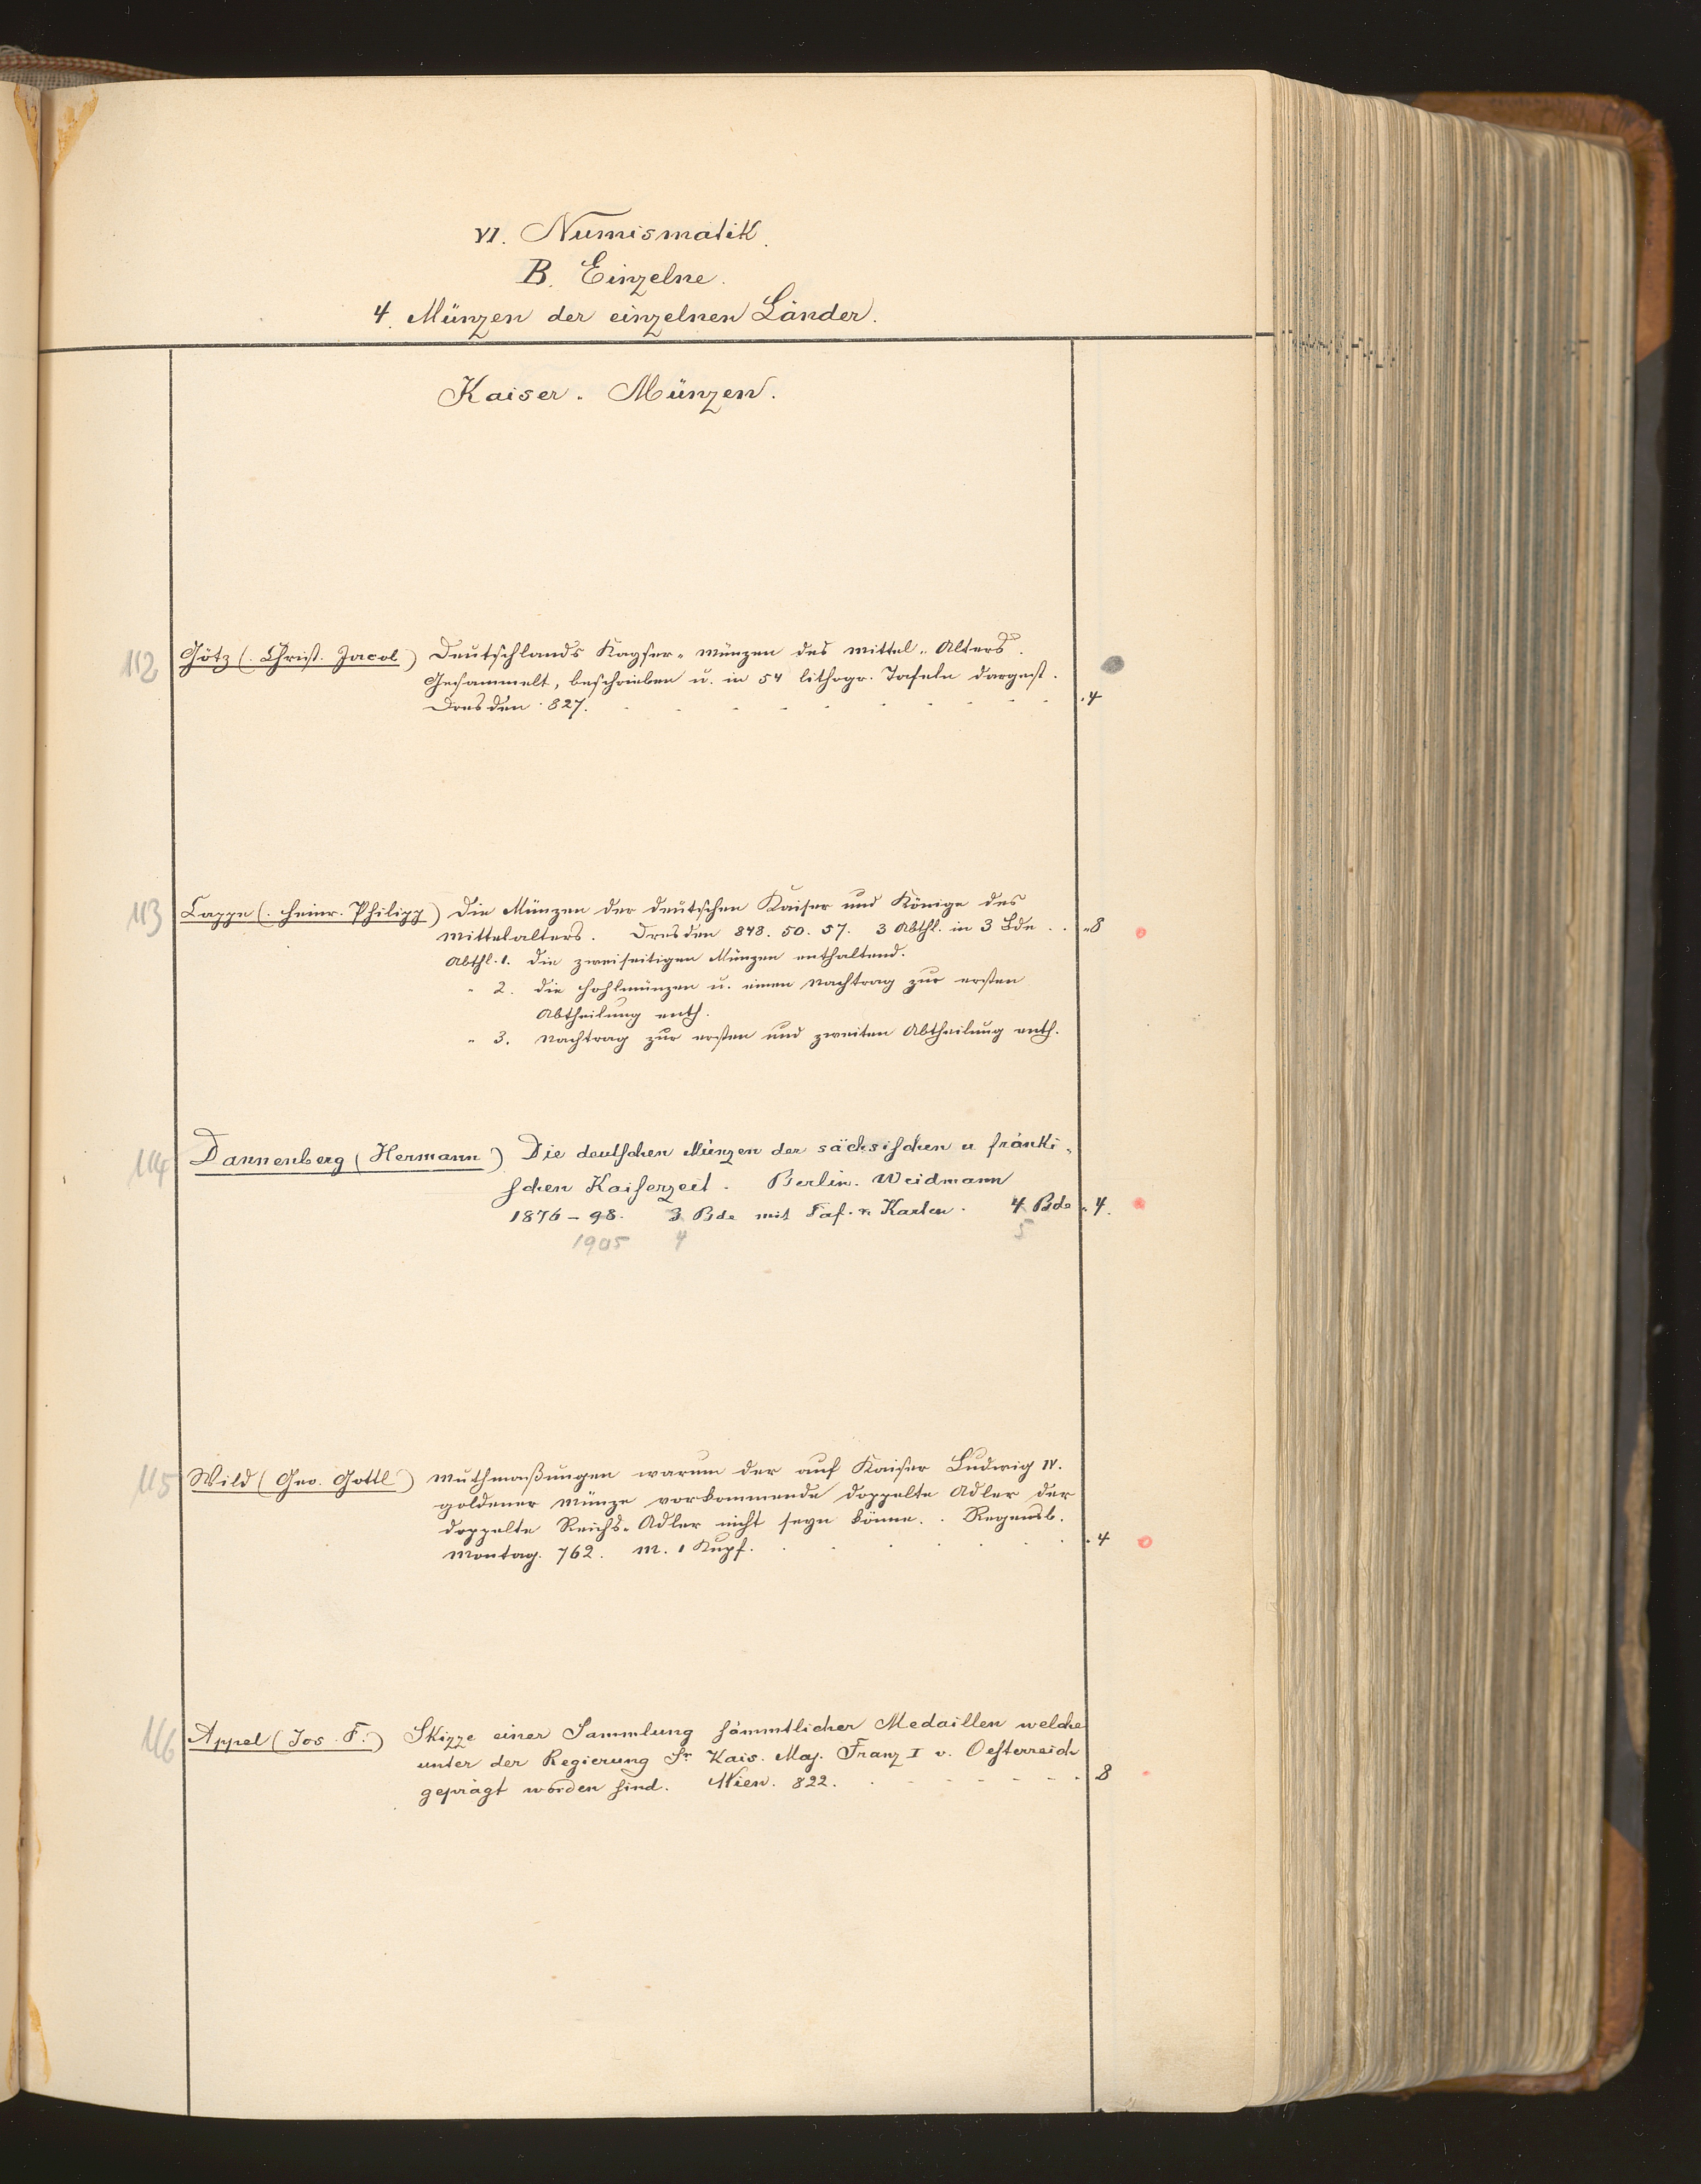 VI. Numismatik.
B. Einzelne.
4. Münzen der einzelnen Länder.
Kaiser-Münzen.
112 Götz (Christ. Jacob) Deutschlands Kayser-münzen des Mittel-Alters.
Gesammelt, beschrieben u. in 54 lithogr. Tafeln dargest.
Dresden 827. 4
113 Cappe (Heinr. Philipp) Die Münzen der deutschen Kaiser und Könige des
Mittelalters. Dresden 848. 50. 57. 3 Abthl. in 3 Bde. 8
Abthl. 1. die zweiseitigen Münzen enthaltend.
" 2. die Hohlmünzen u. einen Nachtrag zur ersten
Abtheilung enth.
" 3. Nachtrag zur ersten und zweiten Abtheilung enth.
114 Dannenberg (Hermann) Die deutschen Münzen der sächsischen u fränki-
schen Kaiserzeit. Berlin. Weidmann
1876-98. 3 Bde mit Taf. u. Karten. 4 Bde 4.
1905 4 5
115 Wild (Geo. Gottl) Muthmaßungen warum der auf Kaiser Ludwig IV.
goldener Münze vorkommende doppelte Adler der
doppelte Reichs-Adler nicht seyn könne. Regensb.
Montag. 762. M. 1 Kupf. 4
116 Appel (Jos. F.) Skizze einer Sammlung sämmtlicher Medaillen welche
unter der Regierung Sr. Kais. Maj. Franz I v. Oesterreich
geprägt worden sind. Wien. 822. 8